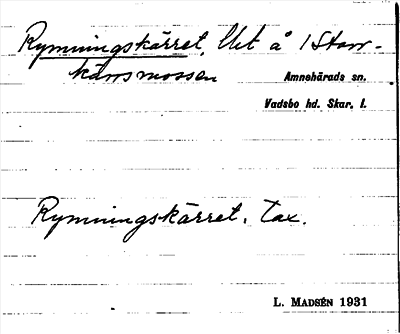 Rymningskärret, Utt å 1 Starr-
kärrsmossen
Amnehärads sn.
Vadsbo hd. Skar. l.
Rymningskärret. Tax.
L. MADSÉN 1931